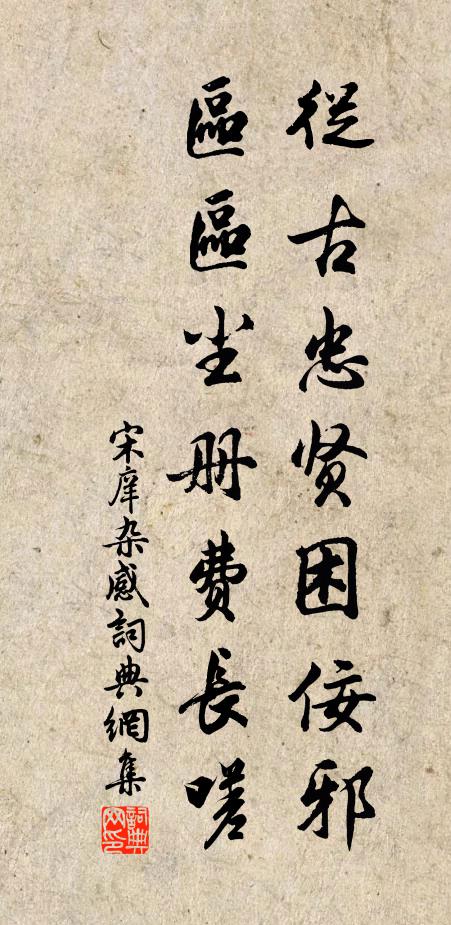 從古忠贤困佞邪
區區尘册费長嗟
宋庠杂感詞典網集
詞典网印